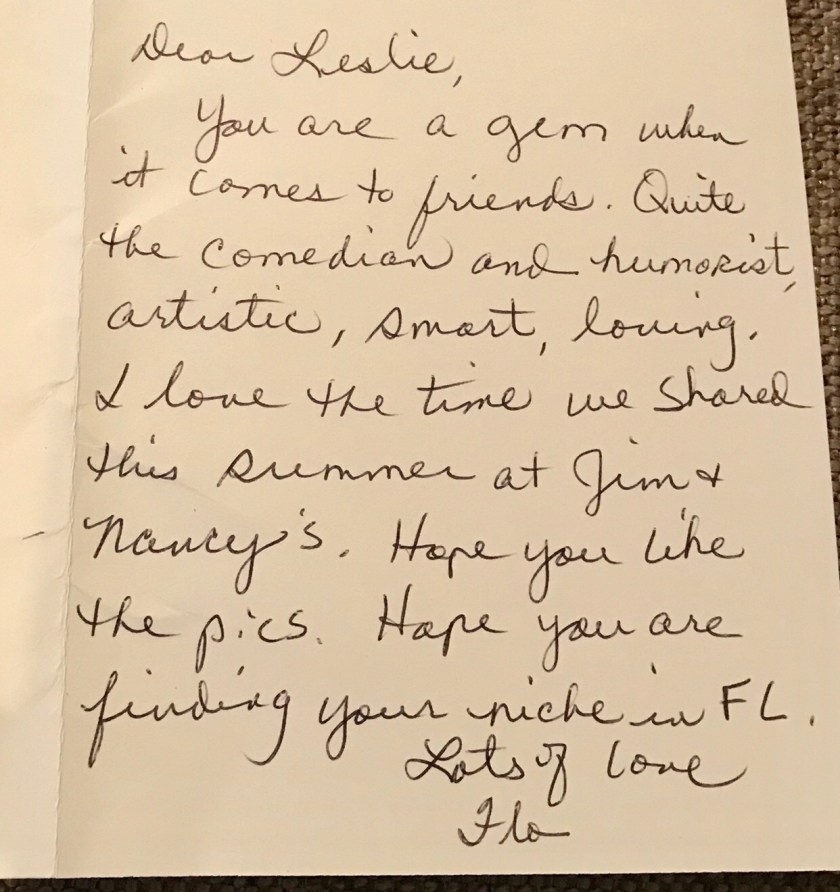 Dear Leslie,
You are a gem when
it comes to friends. Quite
the comedian and humorist,
artistic, smart, loving.
I love the time we shared
this summer at Jim &
Nancy's. Hope you like
the pics. Hope you are
finding your niche in FL.
Lots of love
Flo